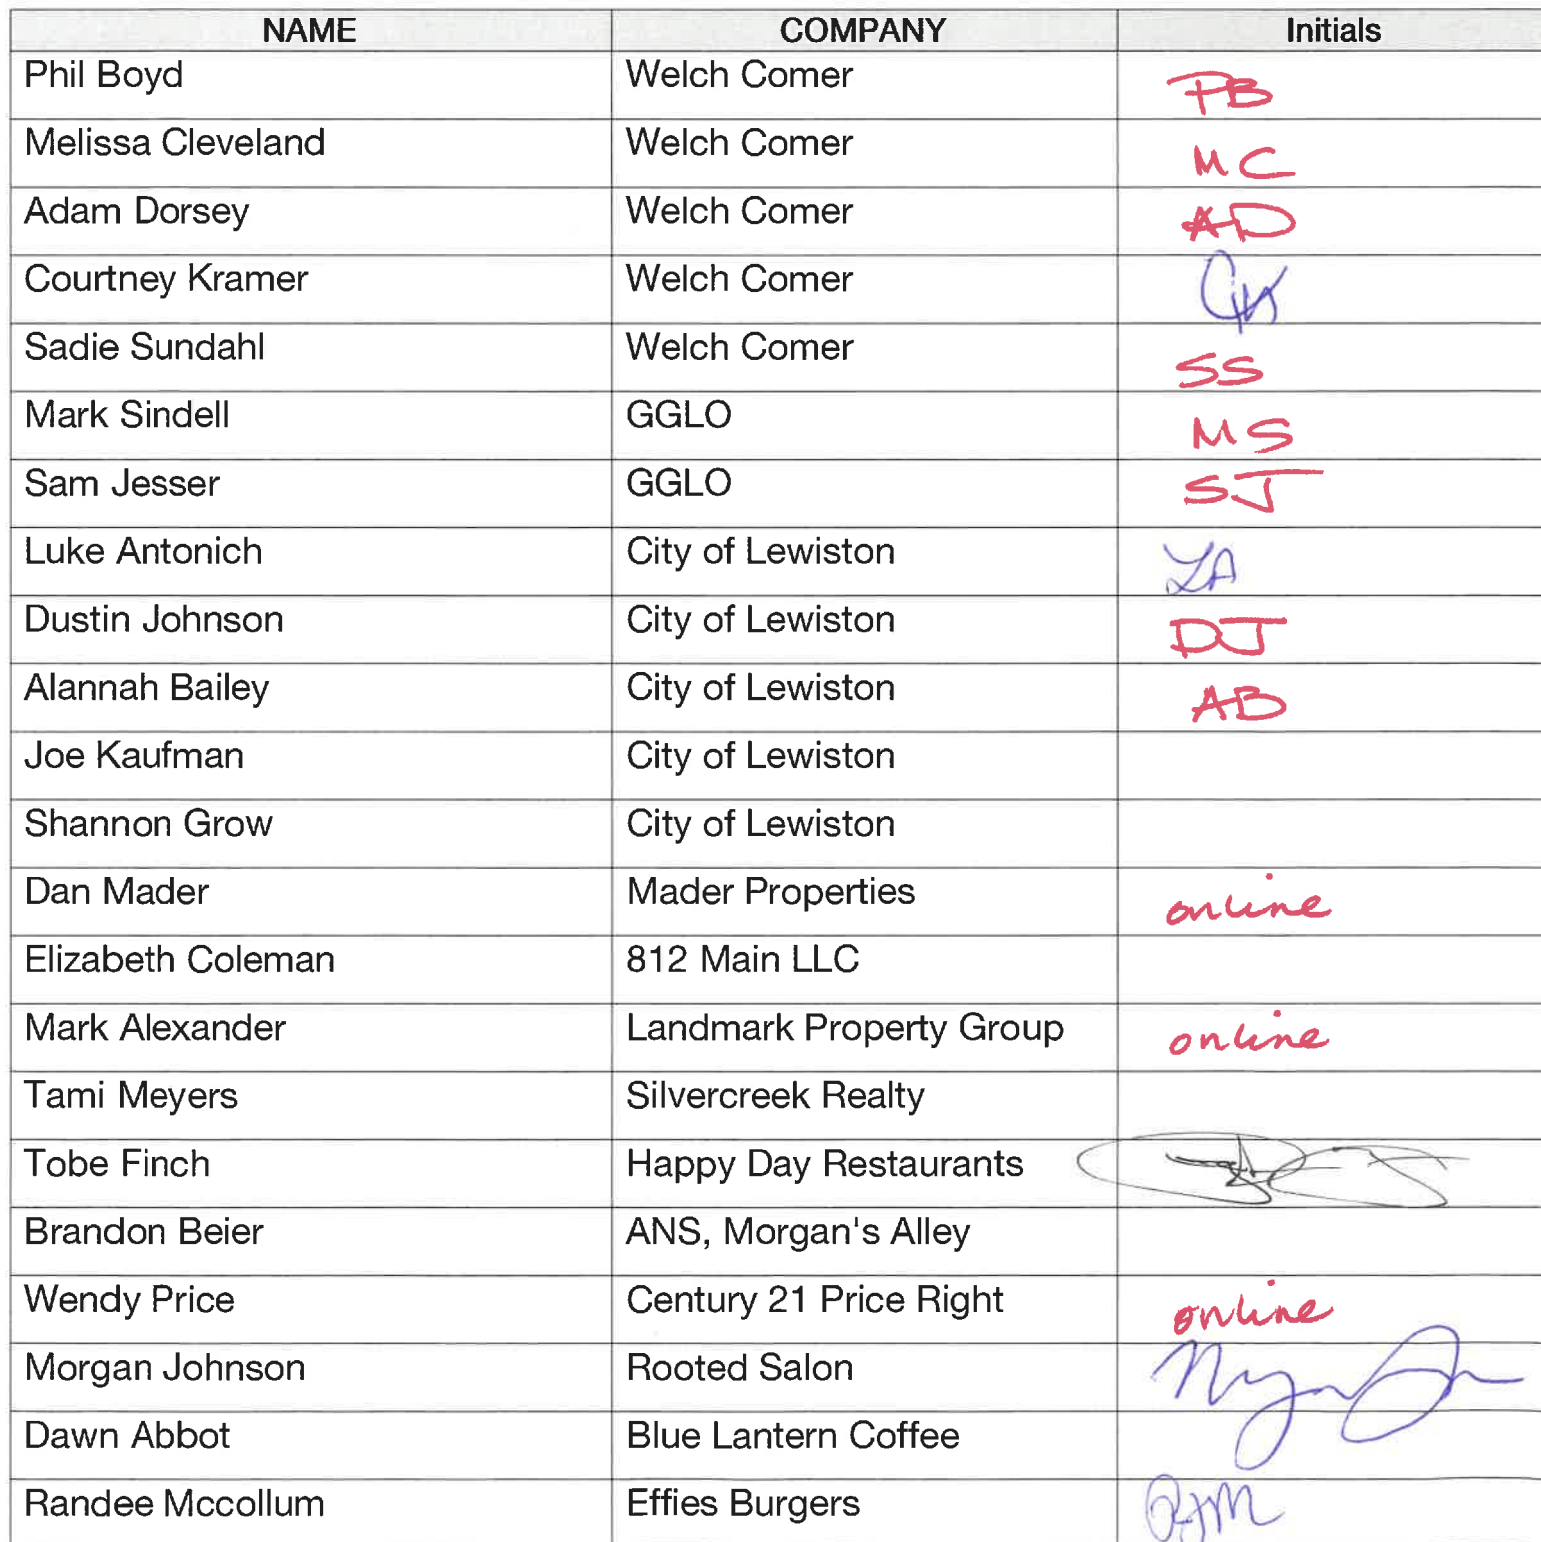 NAME COMPANY Initials
Phil Boyd Welch Comer PB
Melissa Cleveland Welch Comer MC
Adam Dorsey Welch Comer AD
Courtney Kramer Welch Comer CK
Sadie Sundahl Welch Comer SS
Mark Sindell GGLO MS
Sam Jesser GGLO SJ
Luke Antonich City of Lewiston LA
Dustin Johnson City of Lewiston DJ
Alannah Bailey City of Lewiston AB
Joe Kaufman City of Lewiston
Shannon Grow City of Lewiston
Dan Mader Mader Properties online
Elizabeth Coleman 812 Main LLC
Mark Alexander Landmark Property Group online
Tami Meyers Silvercreek Realty
Tobe Finch Happy Day Restaurants
Brandon Beier ANS, Morgan's Alley
Wendy Price Century 21 Price Right online
Morgan Johnson Rooted Salon
Dawn Abbot Blue Lantern Coffee
Randee Mccollum Effies Burgers